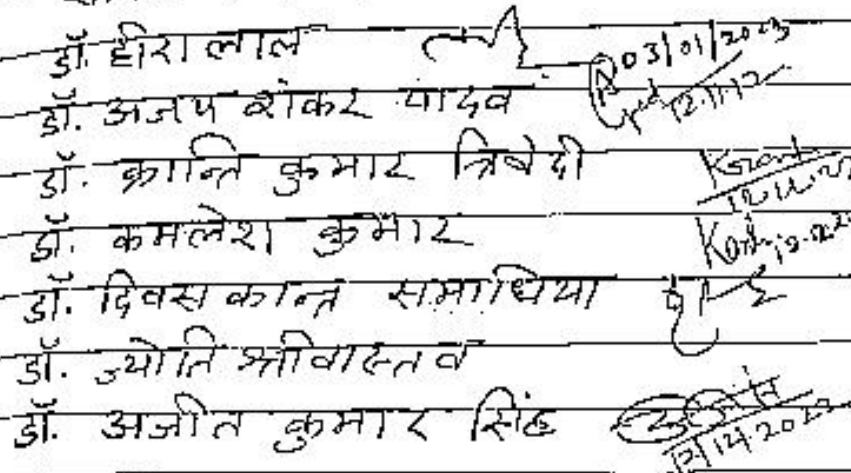 डॉ. हीरा लाल 03/01/2023
डॉ. अजय शंकर यादव
डॉ. क्रान्ति कुमार त्रिवेदी
डॉ. कमलेश कुमार
डॉ. दिवस कान्त समाधिया
डॉ. ज्योति श्रीवास्तव
डॉ. अजीत कुमार सिंह